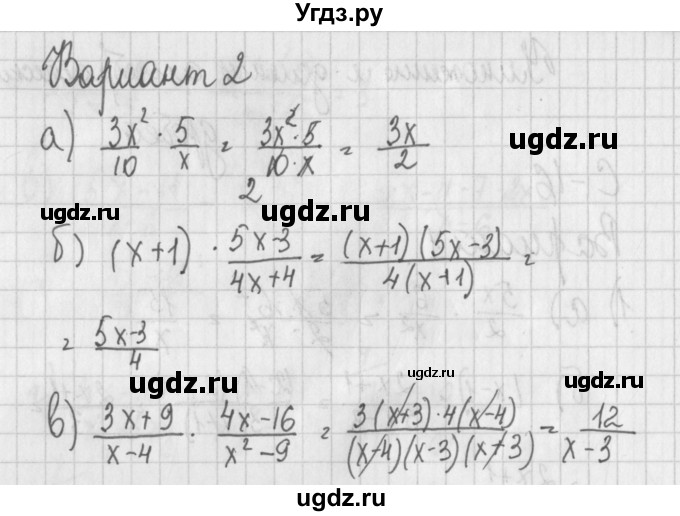 Угдз.ру
Вариант 2
а) 3x²/10 · 5/x = 3x²·5/10·x = 3x/2
2
ugdz.ru
ugdz.ru
ugdz.ru
б) (x+1) · 5x-3/4x+4 = (x+1)(5x-3)/4(x+1) =
= 5x-3/4
ugdz.ru
ugdz.ru
ugdz.ru
в) 3x+9/x-4 · 4x-16/x²-9 = 3(x+3)·4(x-4)/(x-4)(x-3)(x+3) = 12/x-3
ugdz.ru
ugdz.ru
ugdz.ru